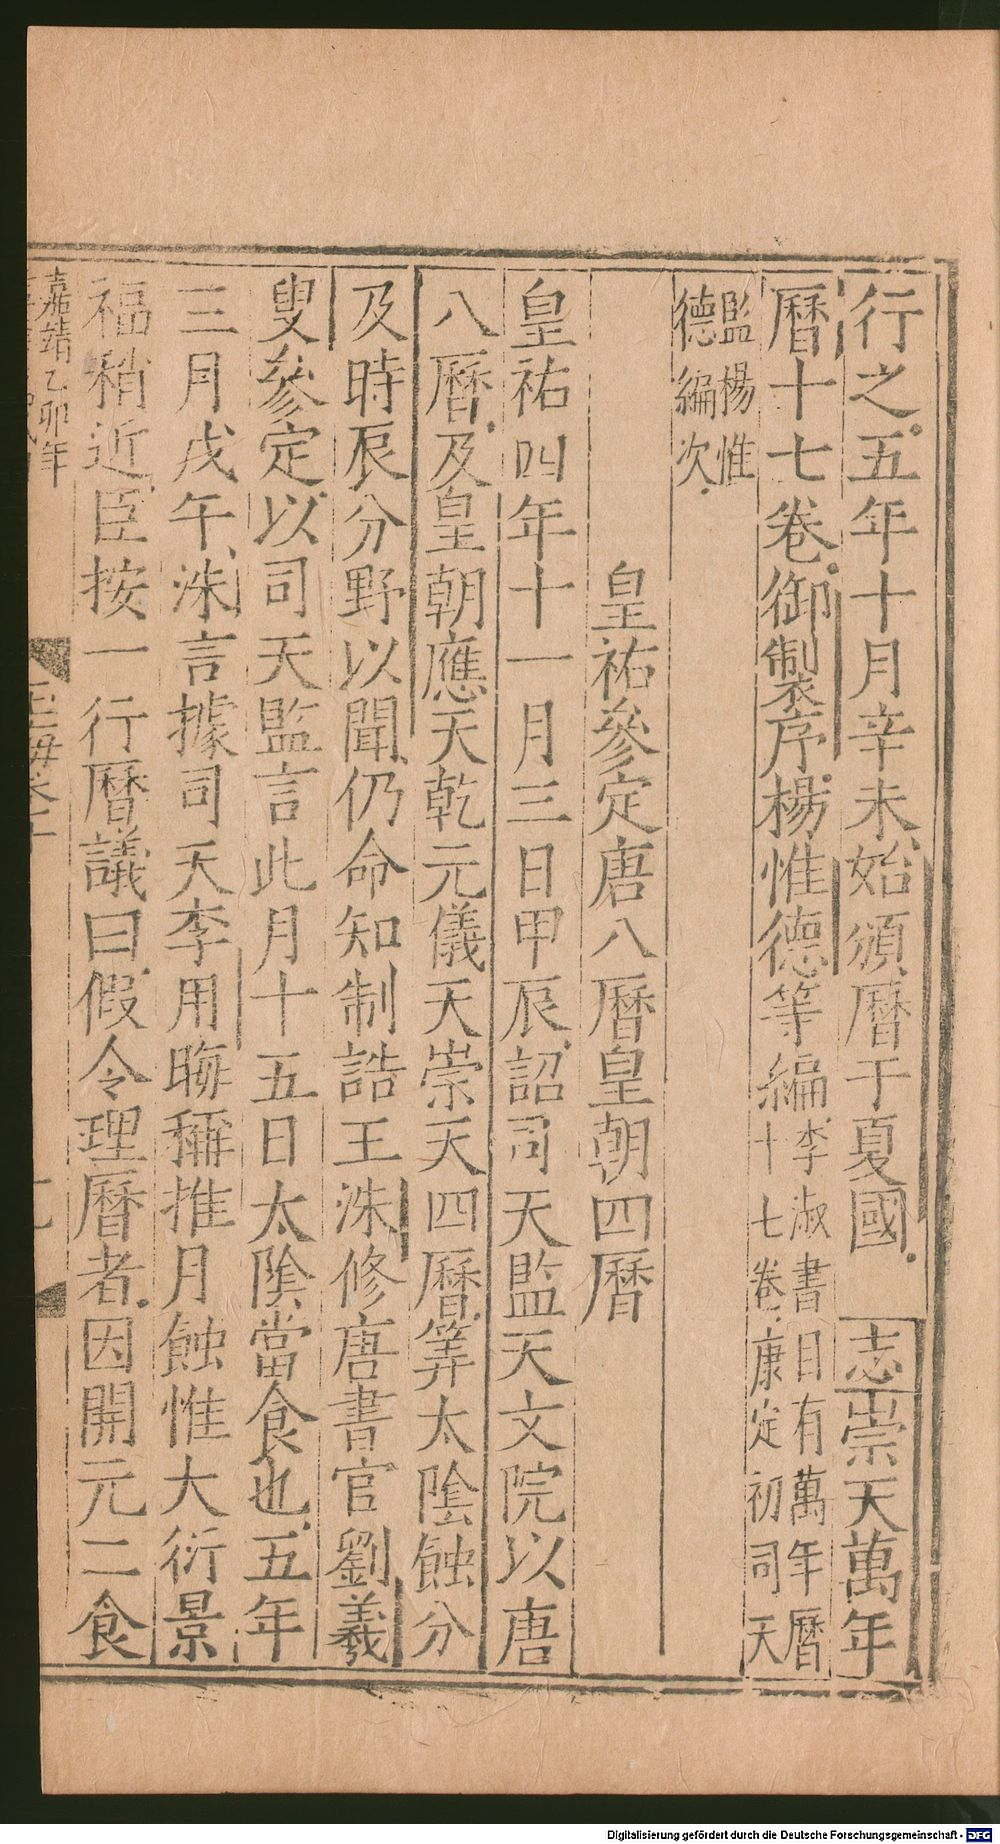 行之五年十月辛未始頒曆于夏國　志崇天萬年
曆十七卷御製序楊惟德等編李淑書目有萬年曆
十七卷康定初司天
監楊惟
德編次
皇祐參定唐八曆皇朝四曆
皇祐四年十一月三日甲辰詔司天監天文院以唐
八曆及皇朝應天乾元儀天崇天四曆筭太陰蝕分
及時辰分野以聞仍命知制誥王洙修唐書官劉羲
叟參定以司天監言此月十五日太陰當食也五年
三月戊午洙言據司天李用晦稱推月蝕惟大衍景
福稍近臣按一行曆議曰假令理曆者因開元二食
嘉靖乙卯年
玉海卷十
Digitalisierung gefördert durch die Deutsche Forschungsgemeinschaft - DFG